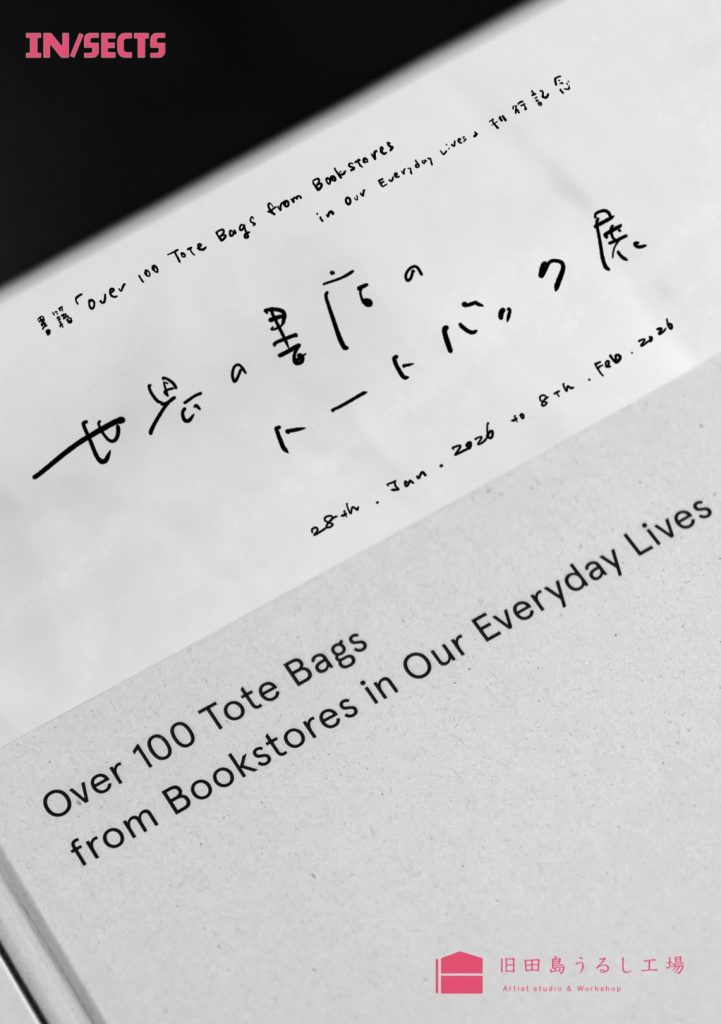 IN/SECTS
書籍「Over 100 Tote Bags from Bookstores
in Our Everyday Lives」刊行記念
世界の書店の
トートバッグ展
28th. Jan. 2026 to 8th. Feb. 2026
Over 100 Tote Bags
from Bookstores in Our Everyday Lives
旧田島うるし工場
Artist studio & Workshop